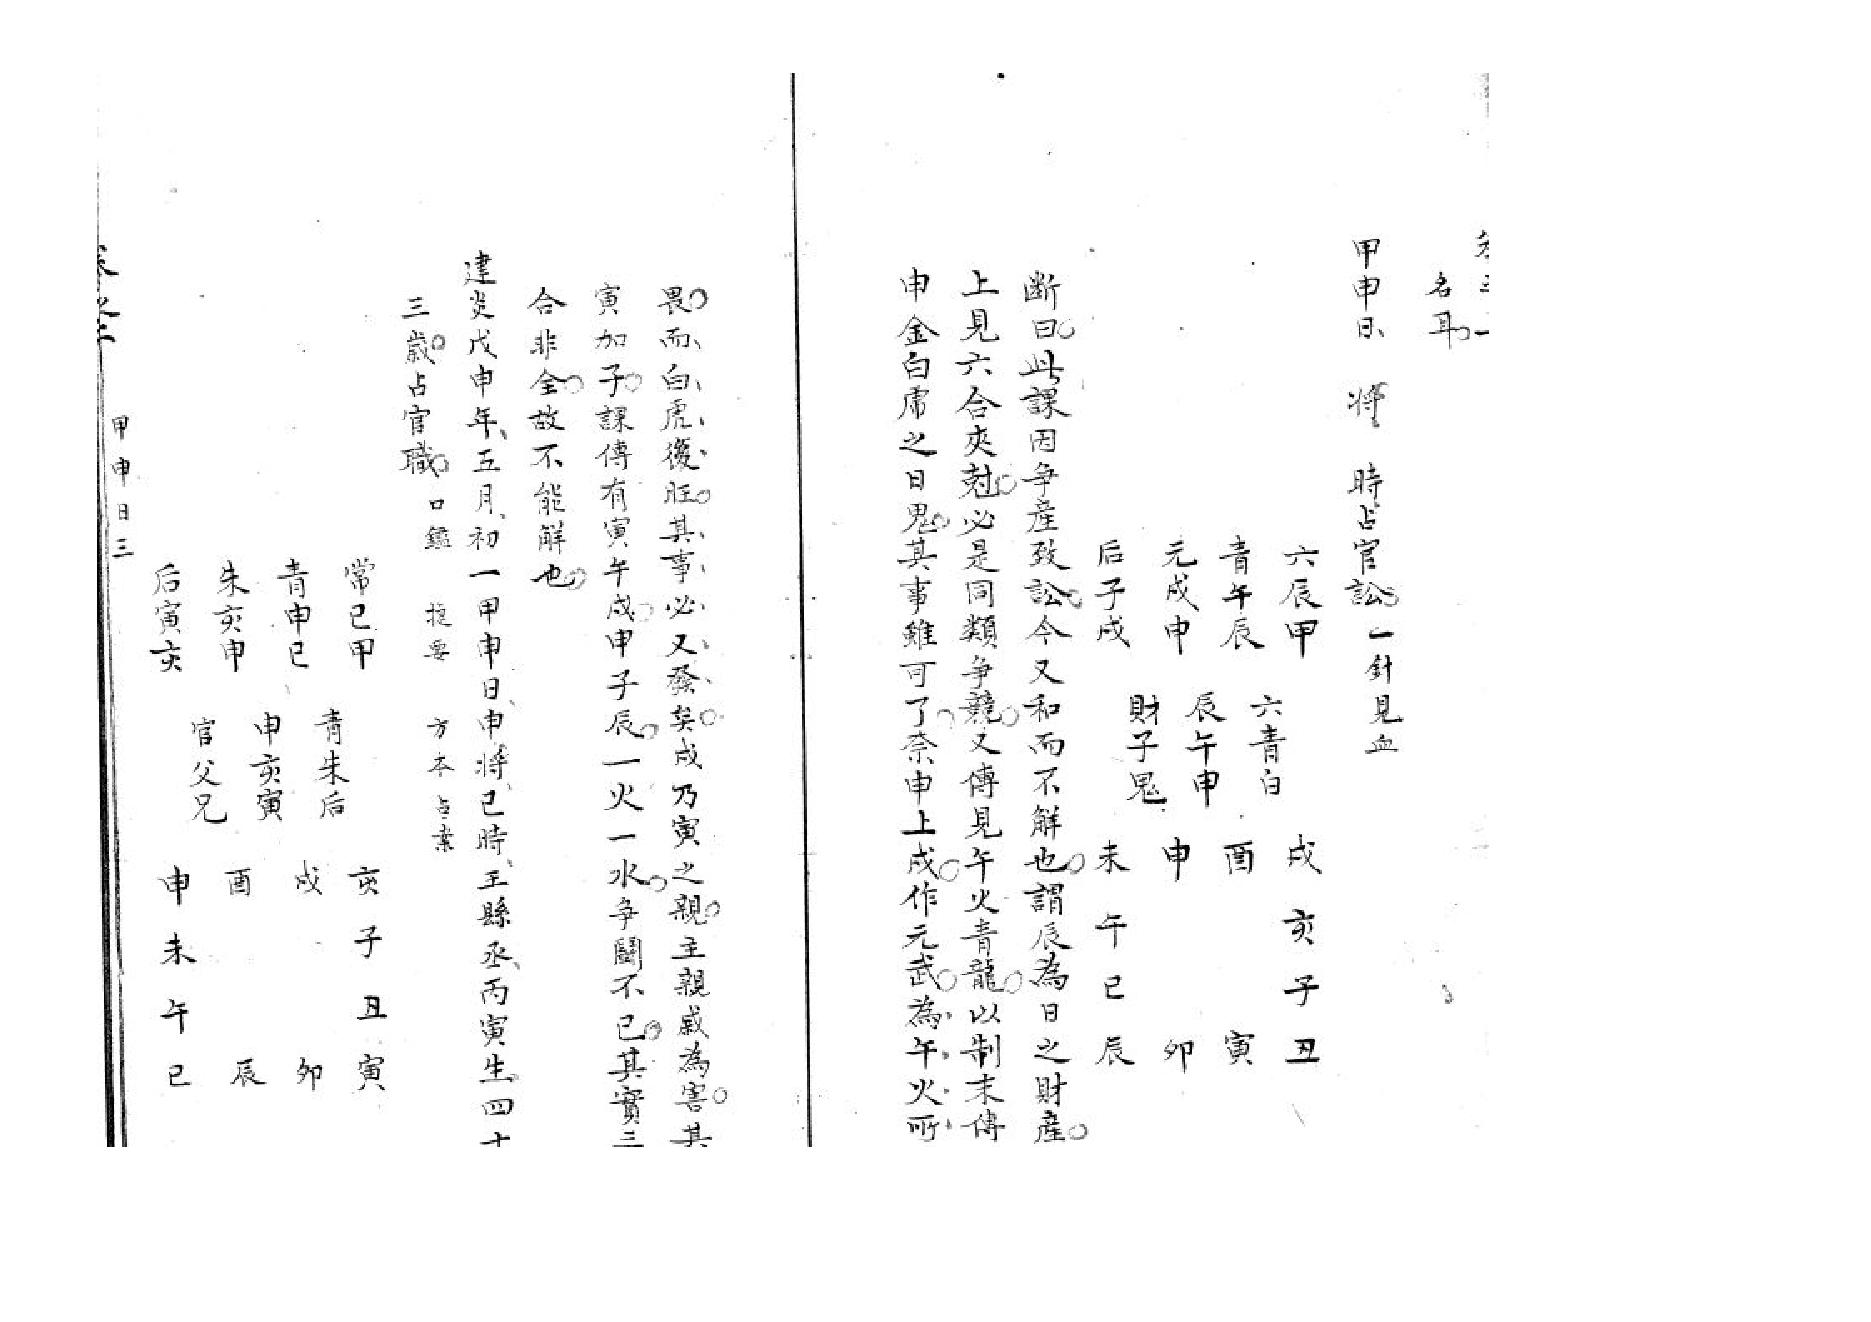 名耳
甲申日 將 時占官訟 一針見血
六辰甲 六青白 戌亥子丑
青午辰 辰午申 酉 寅
元戌申 財子鬼 申 卯
后子戌 未午巳辰
斷曰此課因争產致訟今又和而不解也謂辰為日之財產
上見六合夾尅必是同類爭競又傳見午火青龍以制末傳
申金白虎之日鬼其事雖可了奈申上戌作元武為午火所
畏而白虎復旺其事必又發矣戌乃寅之親主親戚為害其
寅加子課傳有寅午戌申子辰一火一水争鬪不已其實三
合非全故不能解也
建炎戊申年五月初一甲申日申將巳時王縣丞丙寅生四十
三歲占官職 口鑑 捉要 方本占案
常巳甲 青朱后 亥子丑寅
青申巳 申亥寅 戌 卯
朱亥申 官父兄 酉 辰
后寅亥 申未午巳
甲申日三